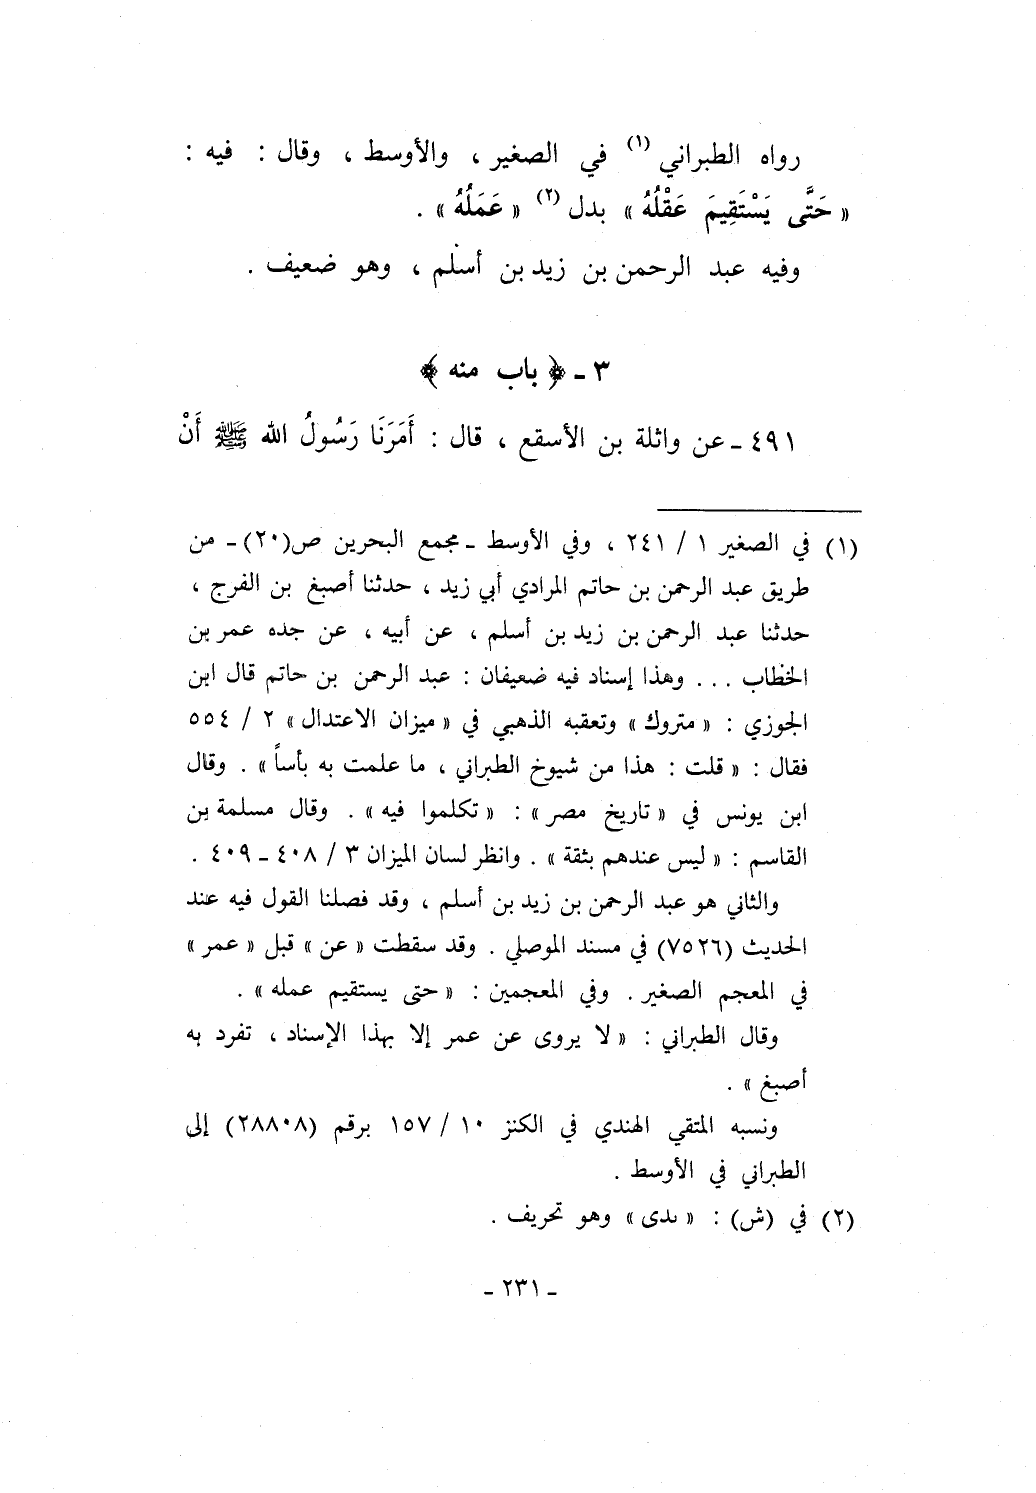 رواه الطبراني (١) في الصغير ، والأوسط ، وقال : فيه :
« حَتَّى يَسْتَقِيمَ عَقْلُهُ » بدل (٢) « عَمَلُهُ » .
وفيه عبد الرحمن بن زيد بن أسلم ، وهو ضعيف .
٣ - ﴿ باب منه ﴾
٤٩١ - عن واثلة بن الأسقع ، قال : أَمَرَنَا رَسُولُ الله ﷺ أَنْ
(١) في الصغير ١ / ٢٤١ ، وفي الأوسط - مجمع البحرين ص(٢٠) - من
طريق عبد الرحمن بن حاتم المرادي أبي زيد ، حدثنا أصبغ بن الفرج ،
حدثنا عبد الرحمن بن زيد بن أسلم ، عن أبيه ، عن جده عمر بن
الخطاب . . . وهذا إسناد فيه ضعيفان : عبد الرحمن بن حاتم قال ابن
الجوزي : « متروك » وتعقبه الذهبي في « ميزان الاعتدال » ٢ / ٥٥٤
فقال : « قلت : هذا من شيوخ الطبراني ، ما علمت به بأساً » . وقال
ابن يونس في « تاريخ مصر » : « تكلموا فيه » . وقال مسلمة بن
القاسم : « ليس عندهم بثقة » . وانظر لسان الميزان ٣ / ٤٠٨ - ٤٠٩ .
والثاني هو عبد الرحمن بن زيد بن أسلم ، وقد فصلنا القول فيه عند
الحديث (٧٥٢٦) في مسند الموصلي . وقد سقطت « عن » قبل « عمر »
في المعجم الصغير . وفي المعجمين : « حتى يستقيم عمله » .
وقال الطبراني : « لا يروى عن عمر إلا بهذا الإسناد ، تفرد به
أصبغ » .
ونسبه المتقي الهندي في الكنز ١٠ / ١٥٧ برقم (٢٨٨٠٨) إلى
الطبراني في الأوسط .
(٢) في (ش) : « بدى » وهو تحريف .
- ٢٣١ -